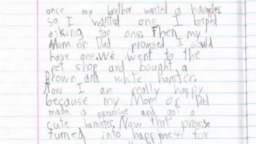 once my brother wanted a hamster
so I wanted one I
asking for one. Then my
Mum or Dad promised I could
have one. We went to the
pet shop and bought a
Brown and white hamster.
Now I am really happy
because my Mom or Dad
made a promise and got a
cute hamster. Now that promise
turned into happiness for